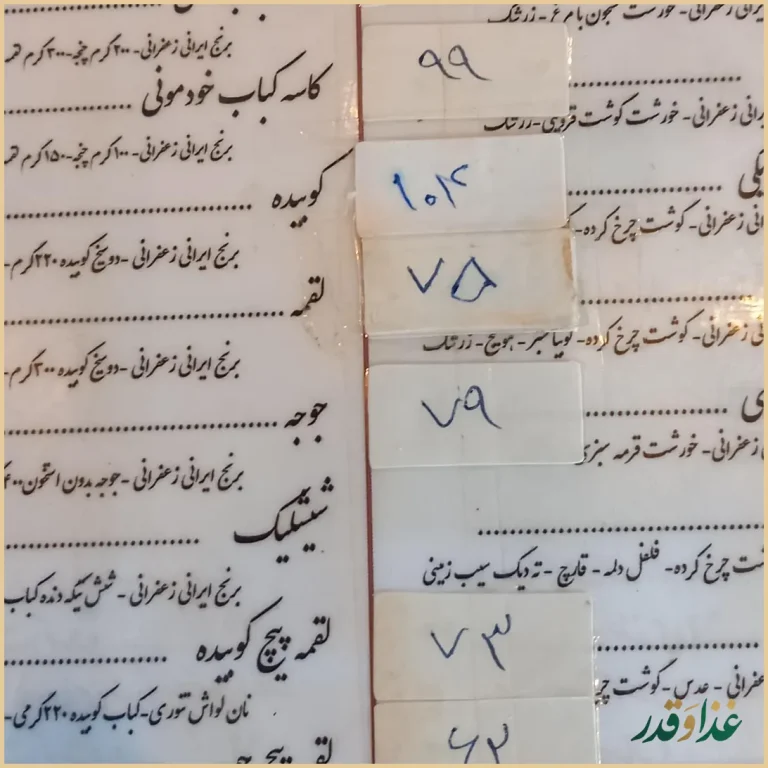 زعفرانی - خورشت
۹۹
زعفرانی - خورشت گوشت قزوینی - زرشک
۱۰۴
زعفرانی - گوشت چرخ کرده -
۷۵
گوشت چرخ کرده - لوبیا سبز - هویج - زرشک
۷۹
زعفرانی - خورشت قرمه سبزی
گوشت چرخ کرده - فلفل دلمه - قارچ - ته دیگ سیب زمینی
۷۳
زعفرانی - عدس - گوشت
۶۳
برنج ایرانی زعفرانی - ۲۰۰ گرم چنجه - ۳۰۰ گرم
کاسه کباب خودمونی
برنج ایرانی زعفرانی - ۱۰۰ گرم چنجه - ۱۵۰ گرم
کوبیده
برنج ایرانی زعفرانی - دو سیخ کوبیده ۲۲۰ گرم -
لقمه
برنج ایرانی زعفرانی - دو سیخ کوبیده ۳۰۰ گرم -
جوجه
برنج ایرانی زعفرانی - جوجه بدون استخون
شیشلیک
برنج ایرانی زعفرانی - شش تیکه دنده کباب
لقمه پیچ کوبیده
نان لواش تنوری - کباب کوبیده ۲۲۰ گرمی -
غذا و قدر